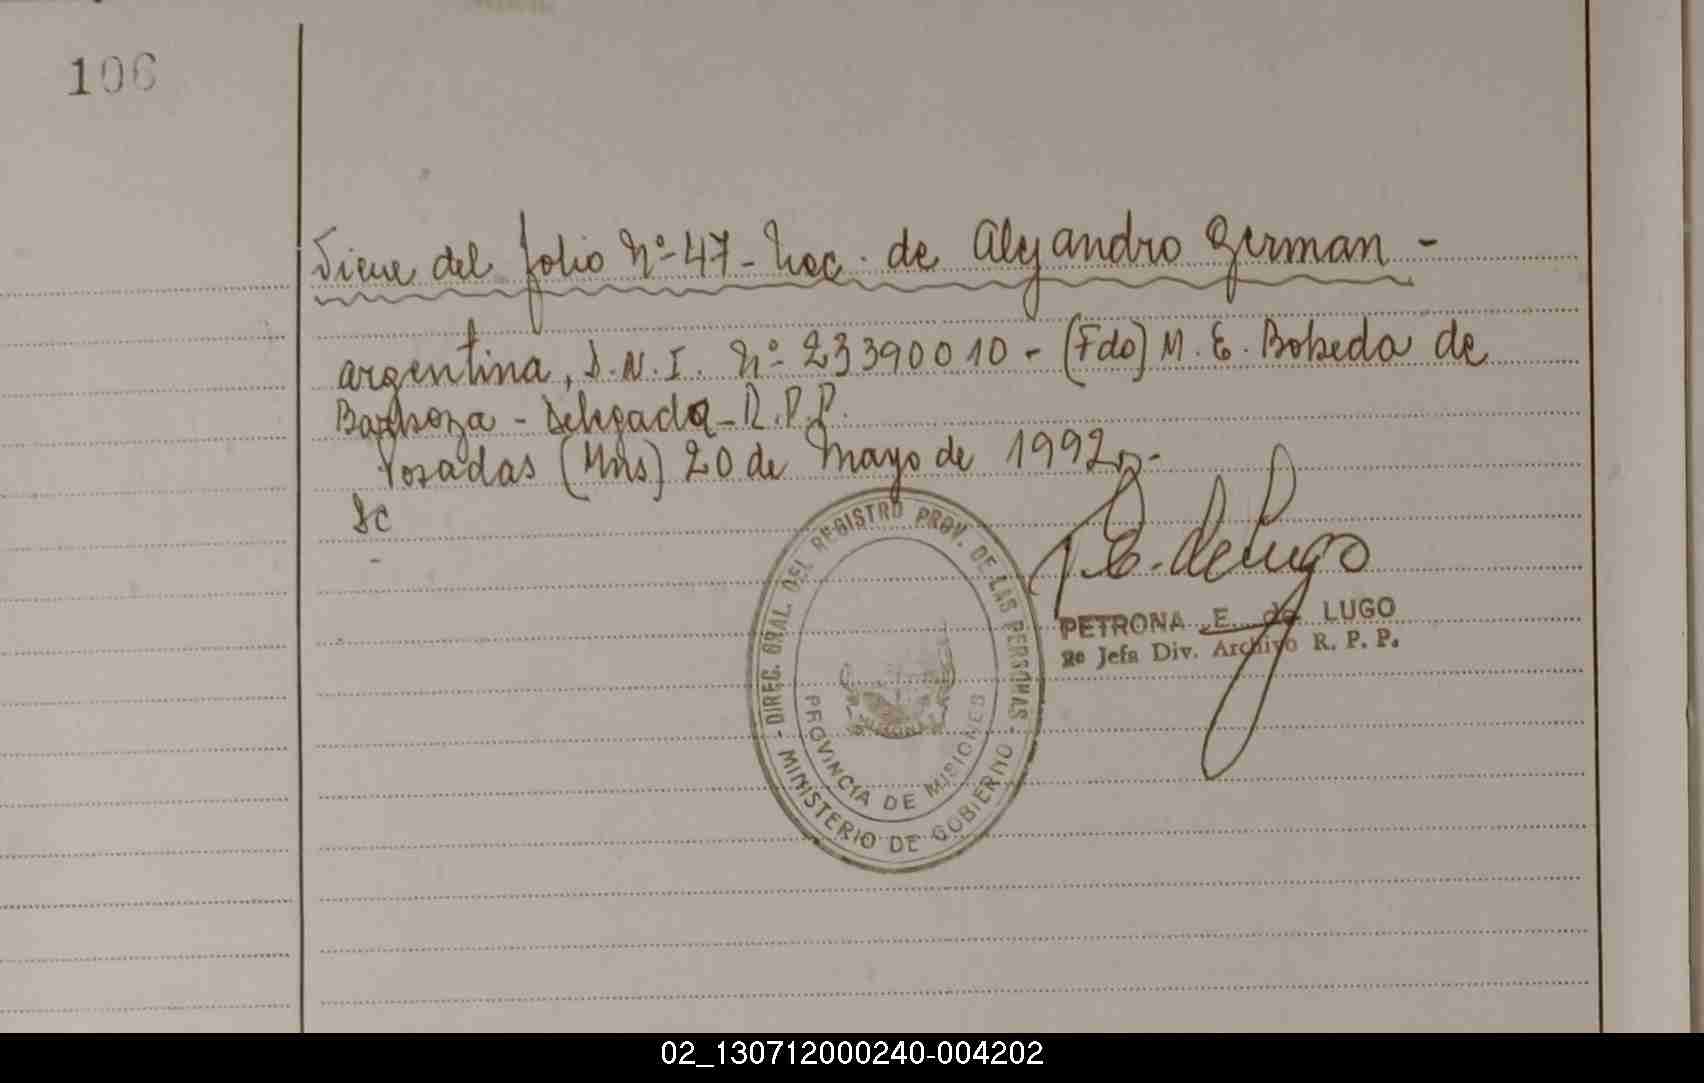 106
Viene del folio Nº 47 - Nac. de Alejandro German -
argentina, D.N.I. Nº 23390010 - (Fdo) M. E. Bobeda de
Barboza - Delegada - R.P.P.
Posadas (Mns) 20 de Mayo de 1992.-
Sc
P. E. de Lugo
PETRONA E. de LUGO
2º Jefa Div. Archivo R. P. P.
- DIREC. GRAL. DEL REGISTRO PROV. DE LAS PERSONAS -
MINISTERIO DE GOBIERNO
PROVINCIA DE MISIONES
MISIONES
02_130712000240-004202